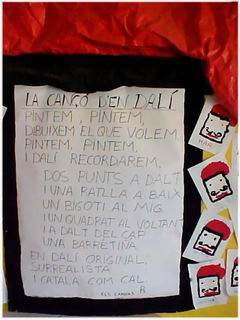 LA CANÇÓ D'EN DALÍ
PINTEM, PINTEM,
DIBUIXEM EL QUE VOLEM.
PINTEM, PINTEM,
I DALÍ RECORDAREM.
DOS PUNTS A DALT
I UNA RATLLA A BAIX
UN BIGOTI AL MIG
I UN QUADRAT AL VOLTANT
I A DALT DEL CAP
UNA BARRETINA
EN DALÍ ORIGINAL,
SURREALISTA
I CATALÀ COM CAL.